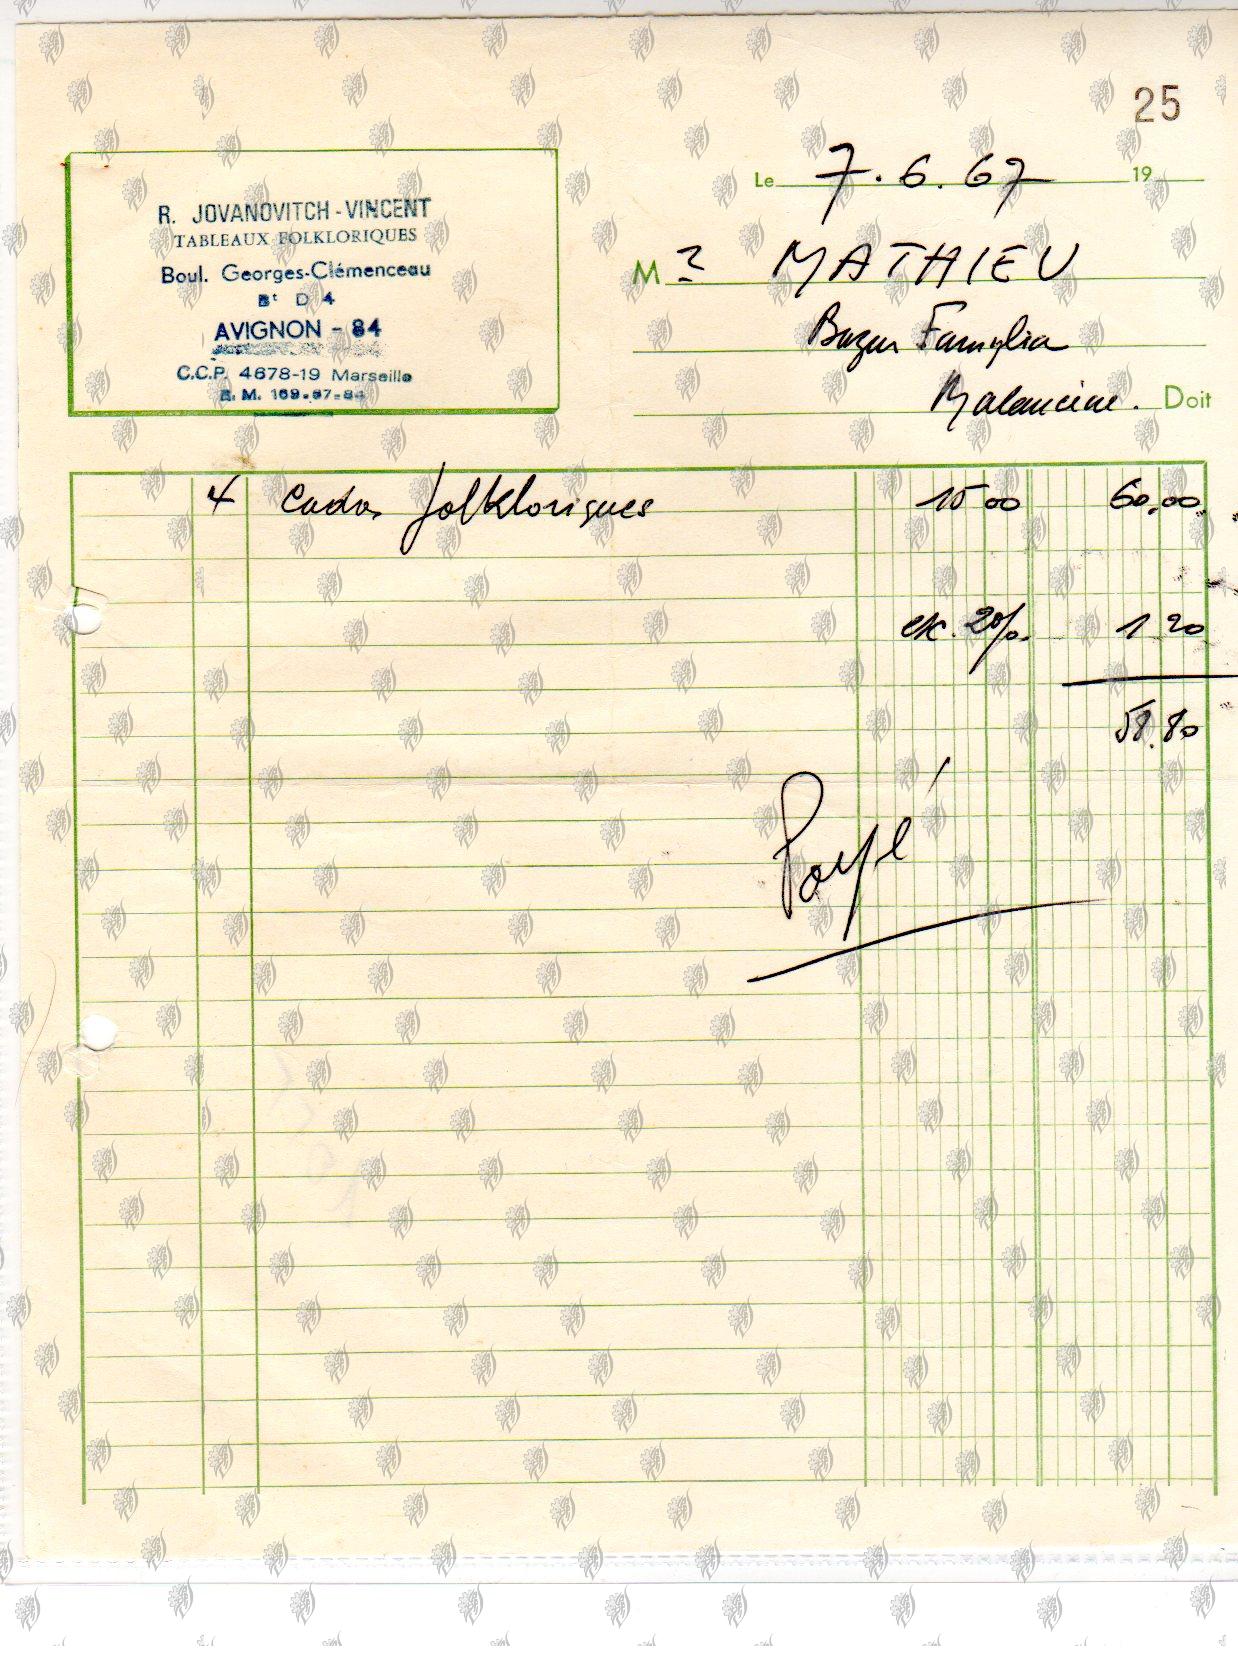 25
Le 7.6.67 19
R. JOVANOVITCH-VINCENT
TABLEAUX FOLKLORIQUES
Boul. Georges-Clémenceau
Bt D 4
AVIGNON - 84
C.C.P. 4678-19 Marseille
R. M. 169-97-84
M r MATHIEU
Bazar Familia
Malaucène. Doit
4 Cadres folkloriques 15 00 60,00
esc. 2% 1 20
58.80
Payé